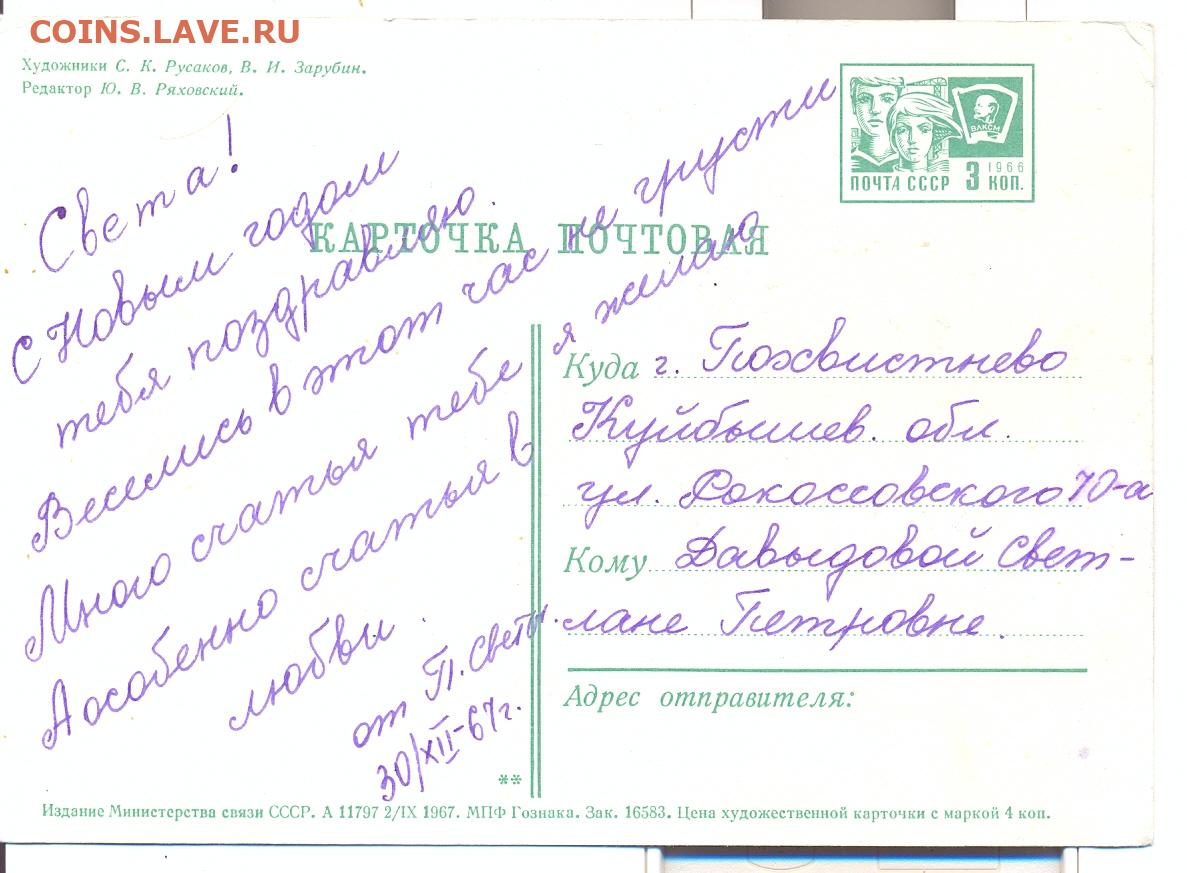 COINS.LAVE.RU
Художники С. К. Русаков, В. И. Зарубин.
Редактор Ю. В. Ряховский.
ВЛКСМ
1966
ПОЧТА СССР 3 КОП.
КАРТОЧКА ПОЧТОВАЯ
Света!
С Новым годом
тебя поздравляю.
Веселись в этот час не грусти
Много счатья тебе я желаю
А особенно счатья в
любви.
от П. Светы.
30/XII-67г.
Куда г. Похвистнево
Куйбышев. обл.
ул. Рокоссовского 70-а
Кому Давыдовой Свет-
лане Петровне.
Адрес отправителя:
**
Издание Министерства связи СССР. А 11797 2/IX 1967. МПФ Гознака. Зак. 16583. Цена художественной карточки с маркой 4 коп.